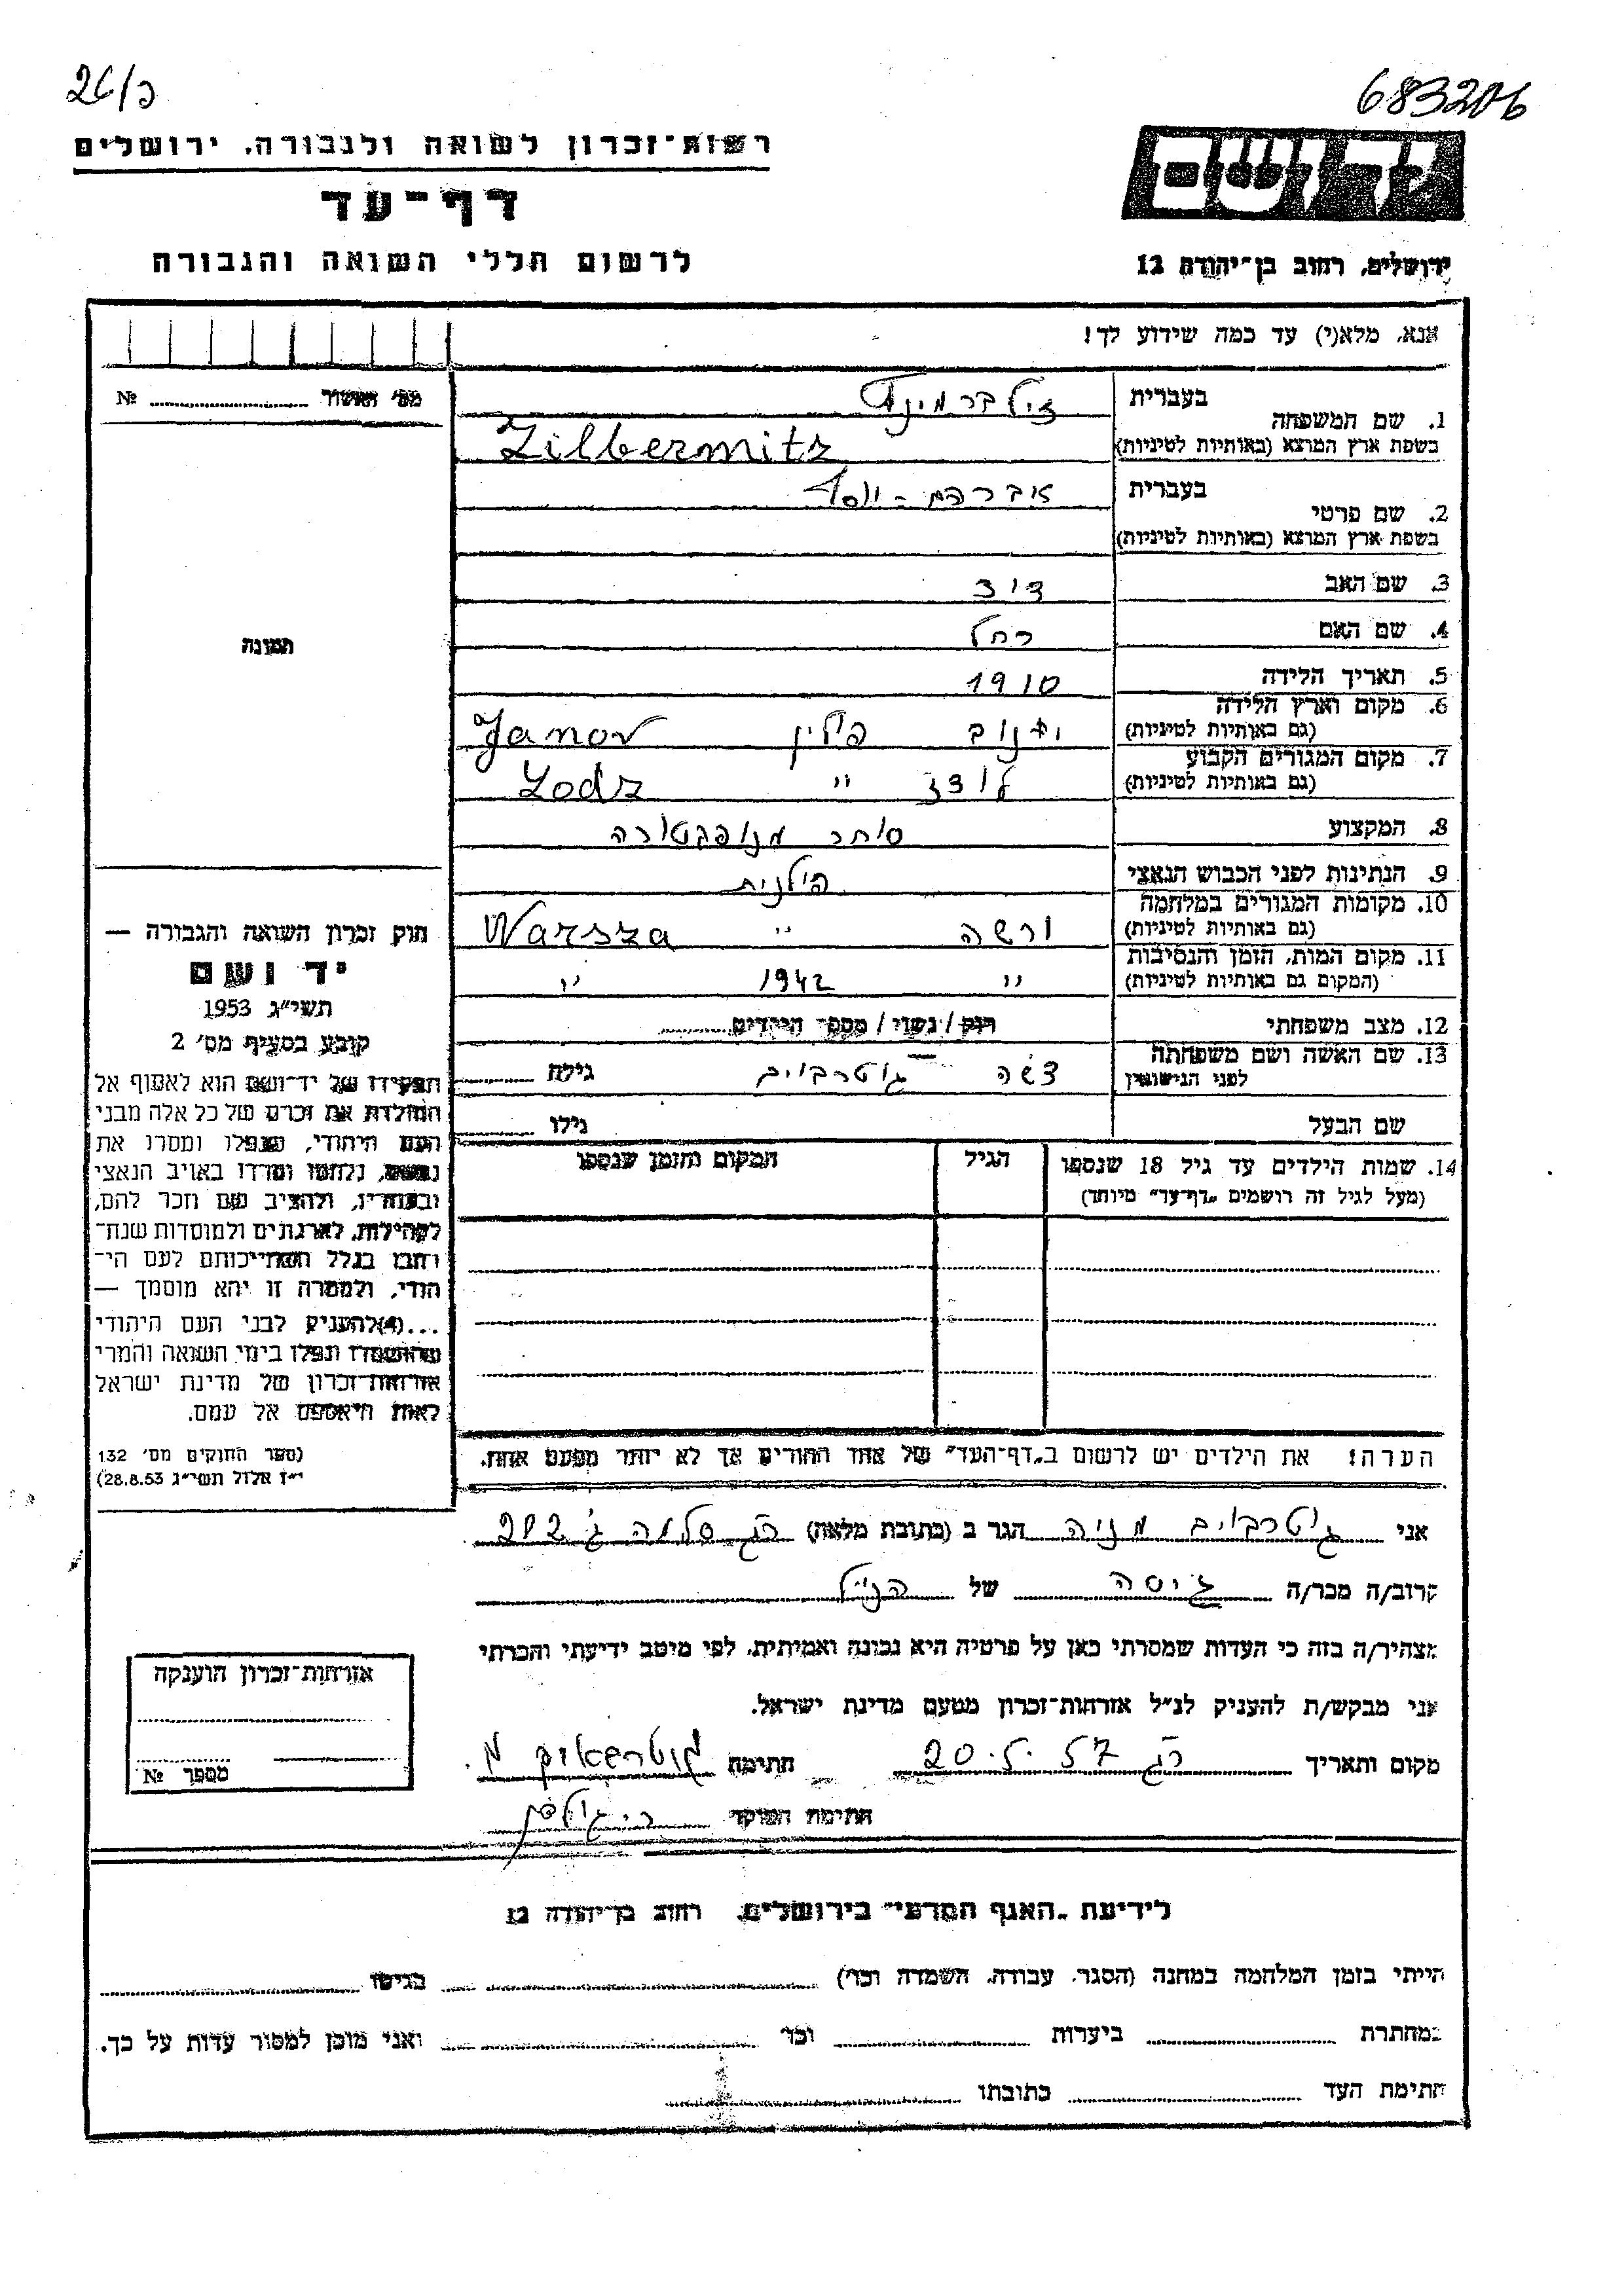 683206
26/כ
רשות־זכרון לשואה ולגבורה, ירושלים
דף־עד
לרשום חללי השואה והגבורה
יד ושם
ירושלים, רחוב בן־יהודה 12
אנא, מלא(י) עד כמה שידוע לך!
מס' האשור № ..........
תמונה
1. שם המשפחה
בעברית זילברמינץ
בשפת ארץ המוצא (באותיות לטיניות) Zilbermitz
2. שם פרטי
בעברית אברהם - יוסף
בשפת ארץ המוצא (באותיות לטיניות)
3. שם האב דוד
4. שם האם רחל
5. תאריך הלידה 1910
6. מקום וארץ הלידה
(גם באותיות לטיניות) ינוב פולין Janov
7. מקום המגורים הקבוע
(גם באותיות לטיניות) לודז " Lodz
8. המקצוע סוחר מנופקטורה
9. הנתינות לפני הכבוש הנאצי פולנית
10. מקומות המגורים במלחמה
(גם באותיות לטיניות) ורשה " Warsza
11. מקום המות, הזמן והנסיבות
(המקום גם באותיות לטיניות) " 1942 "
12. מצב משפחתי רווק / נשוי / מספר הילדים ..........
13. שם האשה ושם משפחתה
לפני הנישואין גוטרבוים גילה ..........
שם הבעל גילו ..........
14. שמות הילדים עד גיל 18 שנספו הגיל המקום והזמן שנספו
(מעל לגיל זה רושמים „דף־עד" מיוחד)
הערה! את הילדים יש לרשום ב„דף־העד" של אחד ההורים אך לא יותר מפעם אחת.
חוק זכרון השואה והגבורה —
יד ושם
תשי"ג 1953
קובע בסעיף מס' 2
תפקידו של יד־ושם הוא לאסוף אל
המולדת את זכרם של כל אלה מבני
העם היהודי, שנפלו ומסרו את
נפשם, נלחמו ומרדו באויב הנאצי
ובעוזריו, ולהציב שם וזכר להם,
לקהילות, לארגונים ולמוסדות שנח־
רבו בגלל השתייכותם לעם הי־
הודי, ולמטרה זו יהא מוסמך —
...(4)להעניק לבני העם היהודי
שהושמדו ונפלו בימי השואה והמרי
אזרחות־זכרון של מדינת ישראל
לאות היאספם אל עמם.
(ספר החוקים מס' 132
י"ז אלול תשי"ג 28.8.53)
אני גוטרבוים מניה הגר ב (כתובת מלאה) סלמה ג' 212
קרוב/ה מכר/ה גיסה של הנ"ל
מצהיר/ה בזה כי העדות שמסרתי כאן על פרטיה היא נכונה ואמיתית, לפי מיטב ידיעתי והכרתי
אני מבקש/ת להעניק לנ"ל אזרחות־זכרון מטעם מדינת ישראל.
מקום ותאריך 20.5.57 חתימה
חתימת הפוקד
אזרחות־זכרון הוענקה
מספר №
לידיעת „האגף המדעי" בירושלים, רחוב בן־יהודה 12
הייתי בזמן המלחמה במחנה (הסגר, עבודה, השמדה וכד') .......... בגיטו ..........
במחתרת .......... ביערות .......... וכד' .......... ואני מוכן למסור עדות על כך.
חתימת העד .......... כתובתו ..........